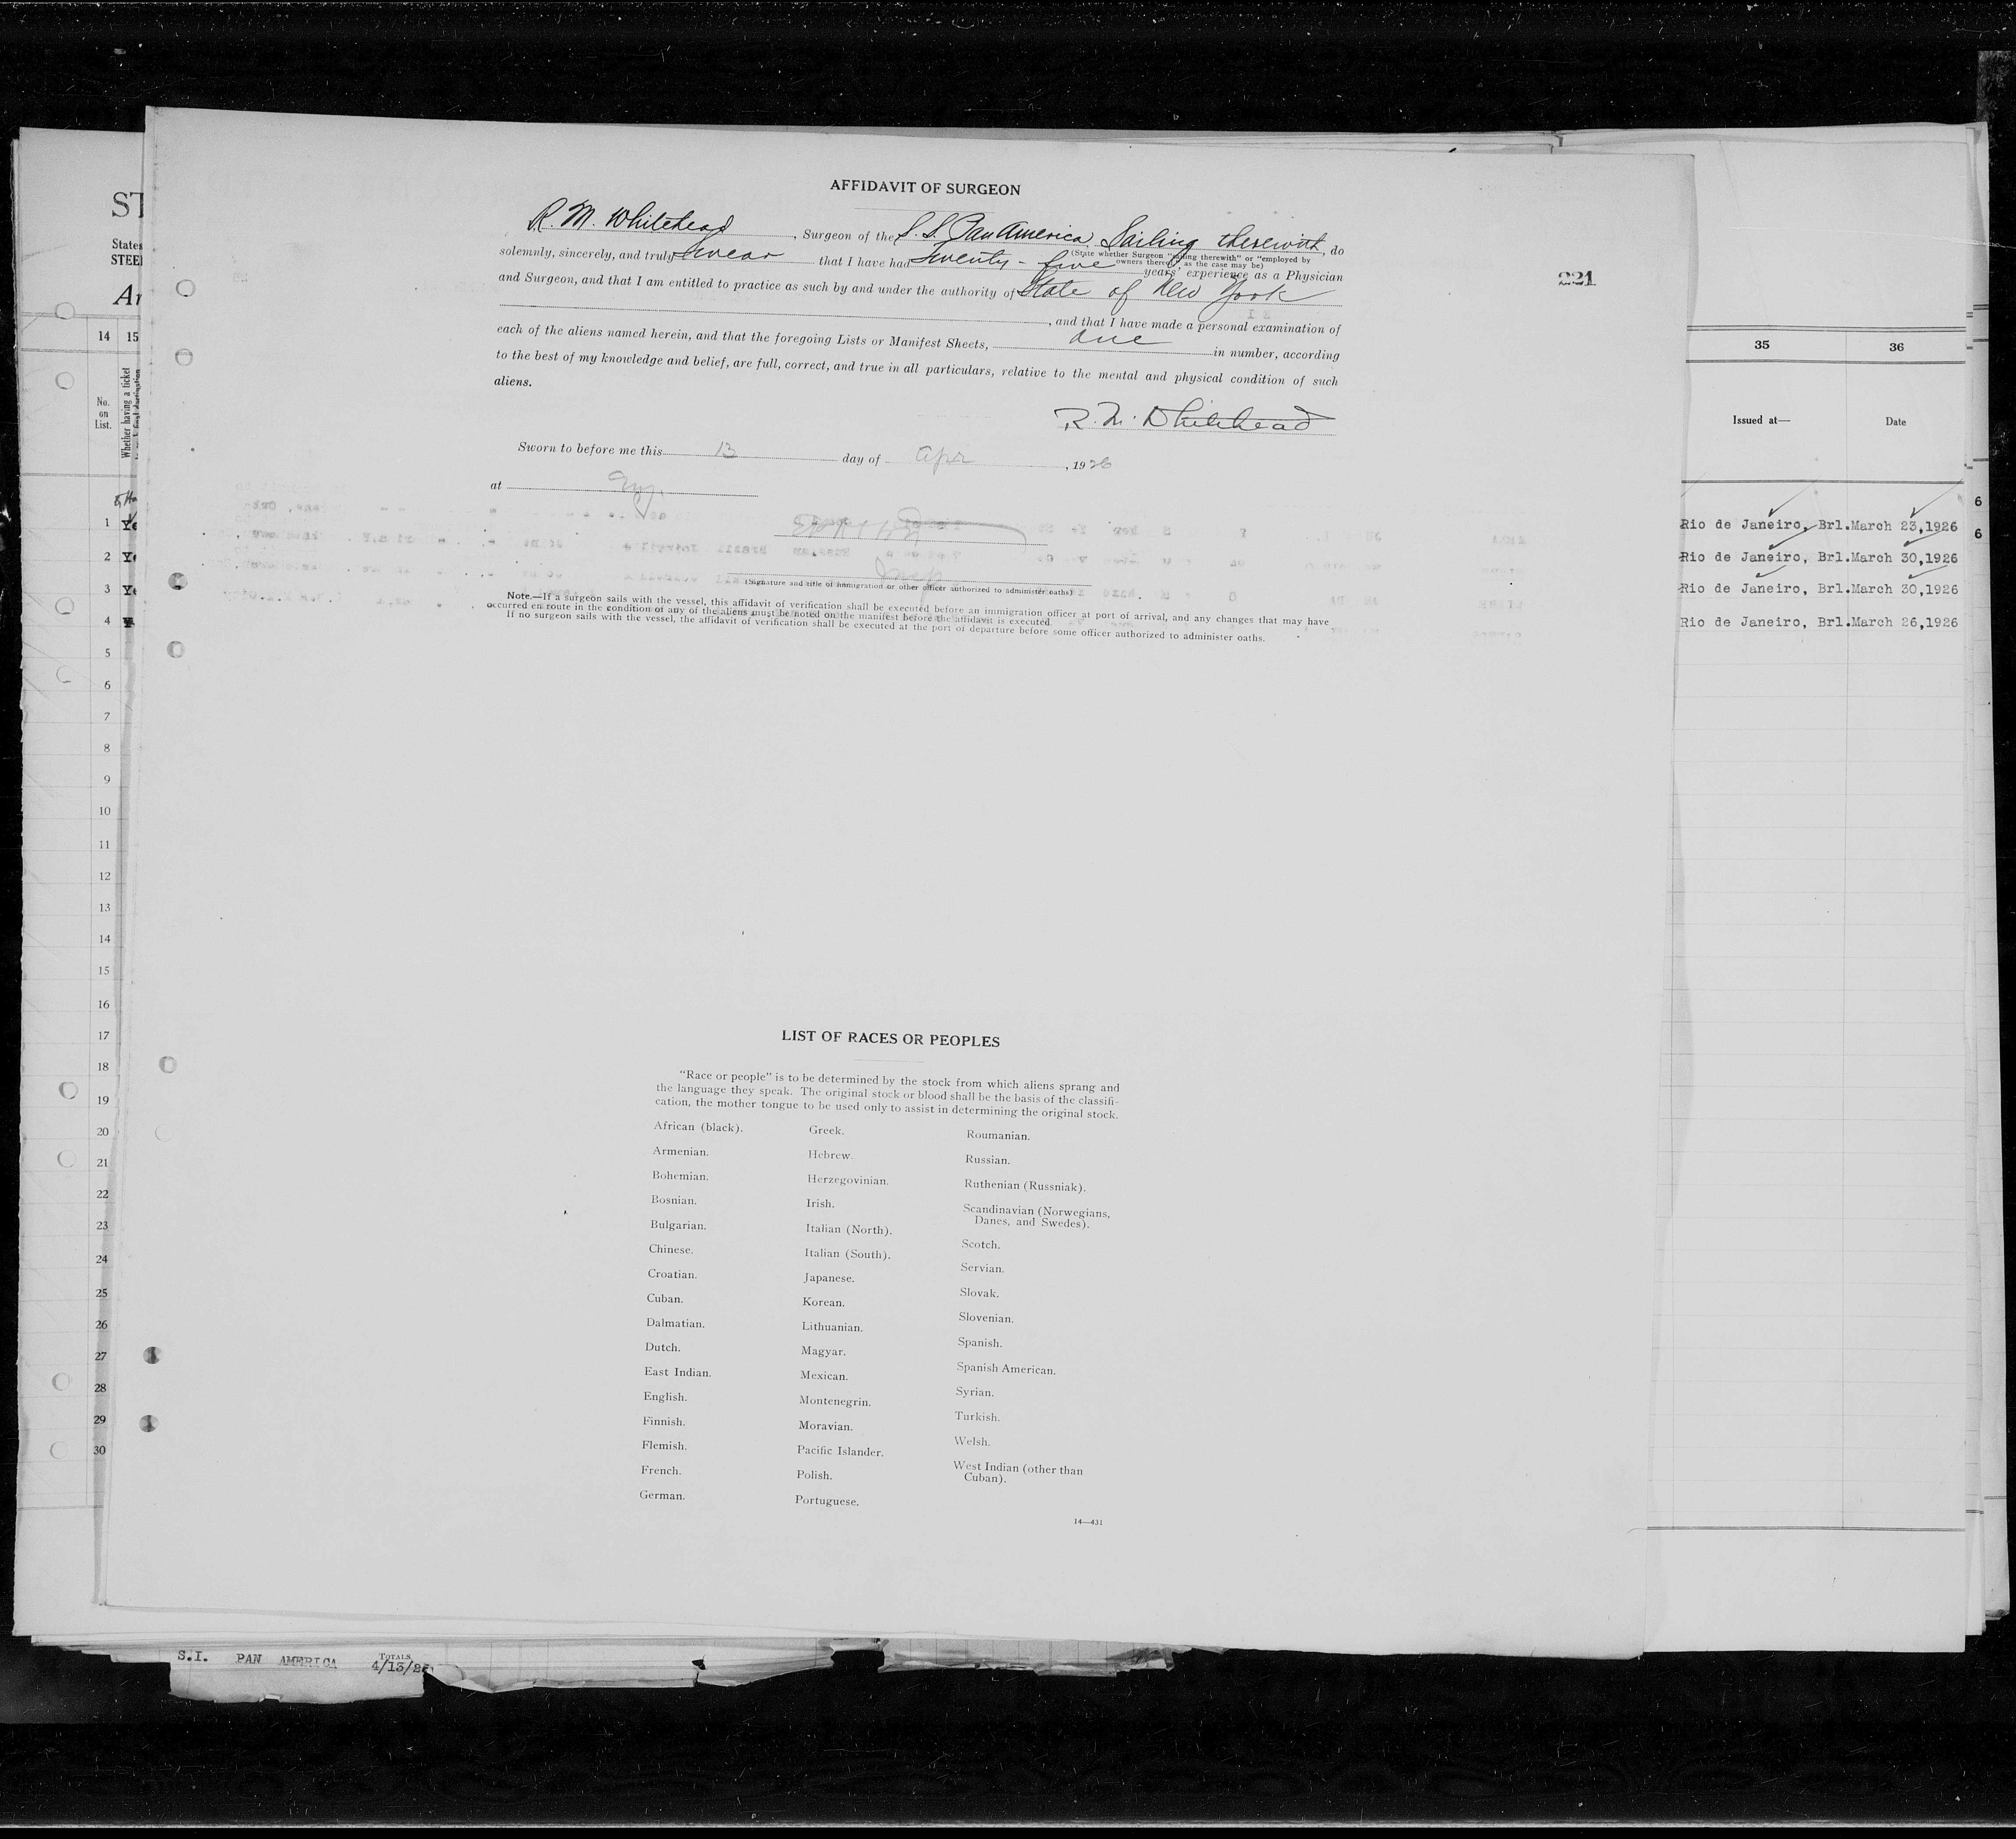 AFFIDAVIT OF SURGEON
R. M. Whitehead, Surgeon of the S. S. Pan America, Sailing therewith, do
(State whether Surgeon "sailing therewith" or "employed by
owners thereof" as the case may be)
solemnly, sincerely, and truly swear that I have had twenty-five years' experience as a Physician
and Surgeon, and that I am entitled to practice as such by and under the authority of State of New York
, and that I have made a personal examination of
each of the aliens named herein, and that the foregoing Lists or Manifest Sheets, one in number, according
to the best of my knowledge and belief, are full, correct, and true in all particulars, relative to the mental and physical condition of such
aliens.
R. M. Whitehead
Sworn to before me this 13 day of Apr, 1926
at
(Signature and title of immigration or other officer authorized to administer oaths)
Note.—If a surgeon sails with the vessel, this affidavit of verification shall be executed before an immigration officer at port of arrival, and any changes that may have
occurred en route in the condition of any of the aliens must be noted on the manifest before the affidavit is executed.
If no surgeon sails with the vessel, the affidavit of verification shall be executed at the port of departure before some officer authorized to administer oaths.
221
LIST OF RACES OR PEOPLES
"Race or people" is to be determined by the stock from which aliens sprang and
the language they speak. The original stock or blood shall be the basis of the classifi-
cation, the mother tongue to be used only to assist in determining the original stock.
African (black).
Armenian.
Bohemian.
Bosnian.
Bulgarian.
Chinese.
Croatian.
Cuban.
Dalmatian.
Dutch.
East Indian.
English.
Finnish.
Flemish.
French.
German.
Greek.
Hebrew.
Herzegovinian.
Irish.
Italian (North).
Italian (South).
Japanese.
Korean.
Lithuanian.
Magyar.
Mexican.
Montenegrin.
Moravian.
Pacific Islander.
Polish.
Portuguese.
Roumanian.
Russian.
Ruthenian (Russniak).
Scandinavian (Norwegians,
Danes, and Swedes).
Scotch.
Servian.
Slovak.
Slovenian.
Spanish.
Spanish American.
Syrian.
Turkish.
Welsh.
West Indian (other than
Cuban).
14—431
ST
States
STEE
Ar
14 15
No.
on
List.
Whether having a ticket
1 Ye
2 Ye
3 Ye
4
5
6
7
8
9
10
11
12
13
14
15
16
17
18
19
20
21
22
23
24
25
26
27
28
29
30
35 36
Issued at— Date
Rio de Janeiro, Brl. March 23,1926
Rio de Janeiro, Brl. March 30,1926
Rio de Janeiro, Brl. March 30,1926
Rio de Janeiro, Brl. March 26,1926
6
6
TOTALS
S.I. PAN AMERICA 4/13/26